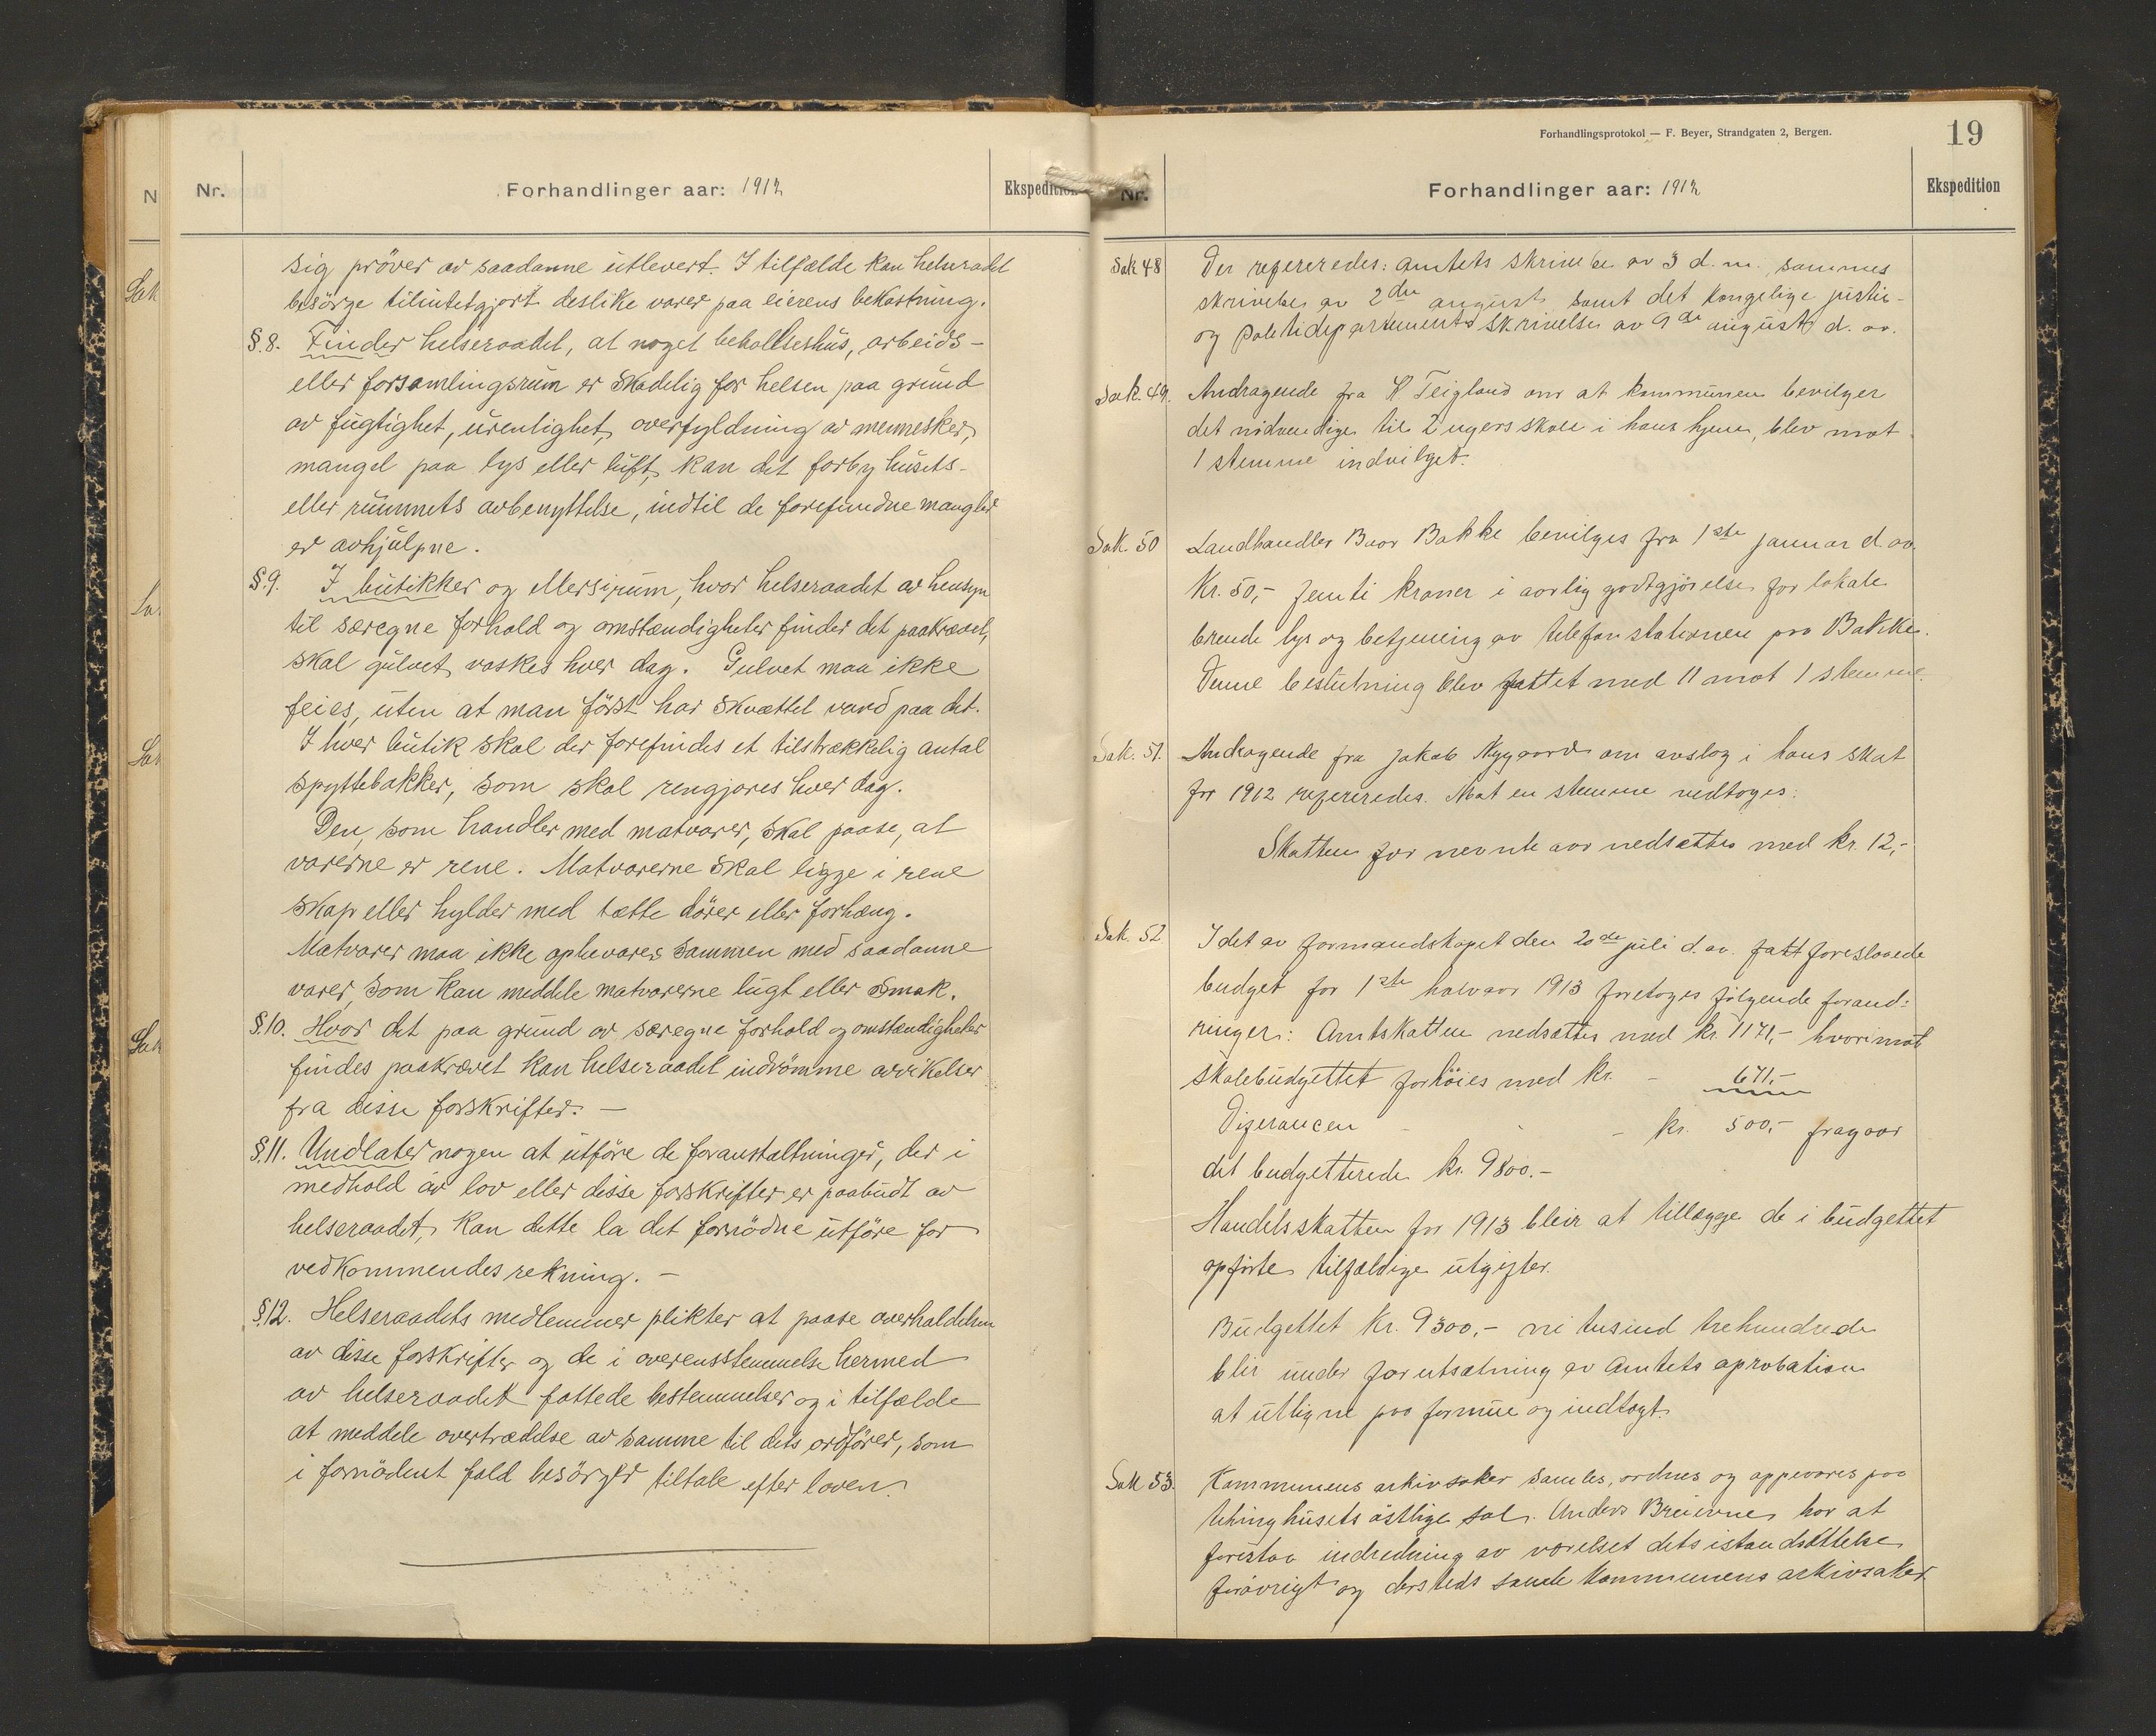 Nr.
Forhandlinger aar: 1912
Ekspedition
sig pröver av saadanne utlevert. I tilfælde kan helseraadet
besörge tilintetgjort deslike varer paa eierens bekostning.
§.8. Finder helseraadet, at noget beboelseshus, arbeids-
eller forsamlingsrum er skadelig for helsen paa grund
av fugtighet, urenlighet, overfyldning av mennesker,
mangel paa lys eller luft, kan det forby husets-
eller rummets avbenyttelse, indtil de forefundne mangler
er avhjulpne.
§.9. I butikker og ellers i rum, hvor helseraadet av hensyn
til særegne forhold og omstændigheter finder det paakrævet,
skal gulvet vaskes hver dag. Gulvet maa ikke
feies, uten at man först har skvættet vand paa det.
I hver butik skal der forefindes et tilstrækkelig antal
spyttebakker, som skal rengjøres hver dag.
Den, som handler med matvarer, skal paase, at
varerne er rene. Matvarerne skal ligge i rene
skap eller hylder med tætte dörer eller forhæng.
Matvarer maa ikke opbevares sammen med saadanne
varer, som kan meddele matvarerne lugt eller smak.
§.10. Hvor det paa grund av særegne forhold og omstændigheter
findes paakrævet kan helseraadet indrömme avvikelser
fra disse forskrifter. —
§.11. Undlater nogen at utföre de foranstaltninger, der i
medhold av lov eller disse forskrifter er paabudt av
helseraadet, kan dette la det fornödne utföre for
vedkommendes rekning. —
§.12. Helseraadets medlemmer plikter at paase overholdelsen
av disse forskrifter og de i overensstemmelse hermed
av helseraadet fattede bestemmelser og i tilfælde
at meddele overtrædelse av samme til dets ordförer, som
i fornödent fald besörger tiltale efter loven.
Forhandlingsprotokol — F. Beyer, Strandgaten 2, Bergen.
19
Nr.
Forhandlinger aar: 1912
Ekspedition
Sak 48 Der refereredes: amtets skrivelse av 3 d.m., sammes
skrivelse av 2den august samt det kongelige justis-
og politidepartements skrivelse av 9de august d. aa.
Sak. 49. Andragende fra K Teigland om at kommunen bevilger
det nödvendige til 2 ugers skole i hans hjem, blev mot
1 stemme indvilget.
Sak. 50 Landhandler Baar Bakke bevilges fra 1ste januar d. aa.
Kr. 50,- femti kroner i aarlig godtgjörelse for lokale
brende lys og betjening av telefonstationen paa Bakke.
Denne beslutning blev fattet med 11 mot 1 stemme.
Sak. 51. Andragende fra Jakob Nygaard om avslag i hans skat
for 1912 refereredes. Mot en stemme vedtoges:
Skatten for nevnte aar nedsættes med kr. 12,-
Sak. 52 I det av formandskapet den 20de juli d. aa. fatt foreslaaede
budget for 1ste halvaar 1913 foretoges følgende forand-
ringer: Amtskatten nedsættes med kr. 1171,- hvorimot
skolebudgettet forhöies med kr. - 671,-
Diferancen - - - kr. 500,- fragaar
det budgetterede kr. 9800.-
Handelsskatten for 1913 bleir at tillægge de i budgettet
opförte tilfældige utgifter.
Budgettet Kr. 9300,- ni tusind trehundrede
blir under forutsætning av Amtets aprobation
at utligne paa formue og indtægt.
Sak 53. Kommunens arkivsaker samles, ordnes og oppevares paa
tinghusets östlige sal. Anders Breievne har at
forestaa indredning av værelset dets istandsættelse
forövrigt og dersteds samle kommunens arkivsaker